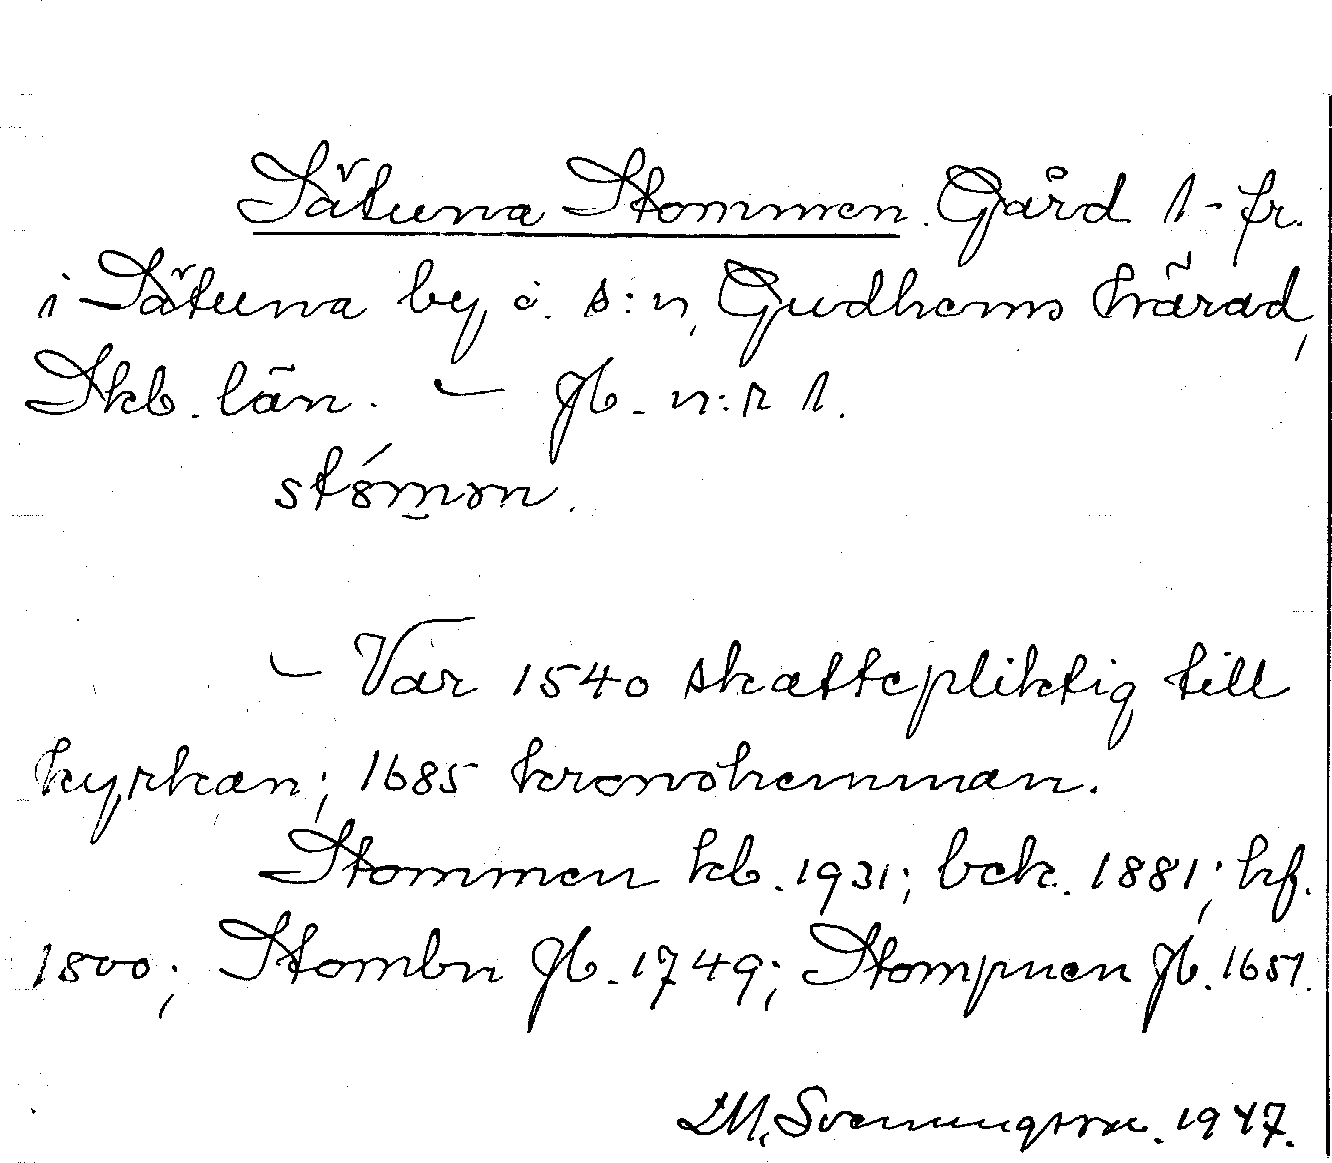 Sätuna Stommen. Gård 1-fr.
i Sätuna by o. s:n, Gudhems härad,
Skb. län. — Jb. n:r 1.
— Var 1540 skattepliktig till
kyrkan; 1685 kronohemman.
Stommen kb. 1931; bek. 1881; kf.
1800; Stombn Jb. 1749; Stompnen Jb. 1651.
Svenungsson. 1947.